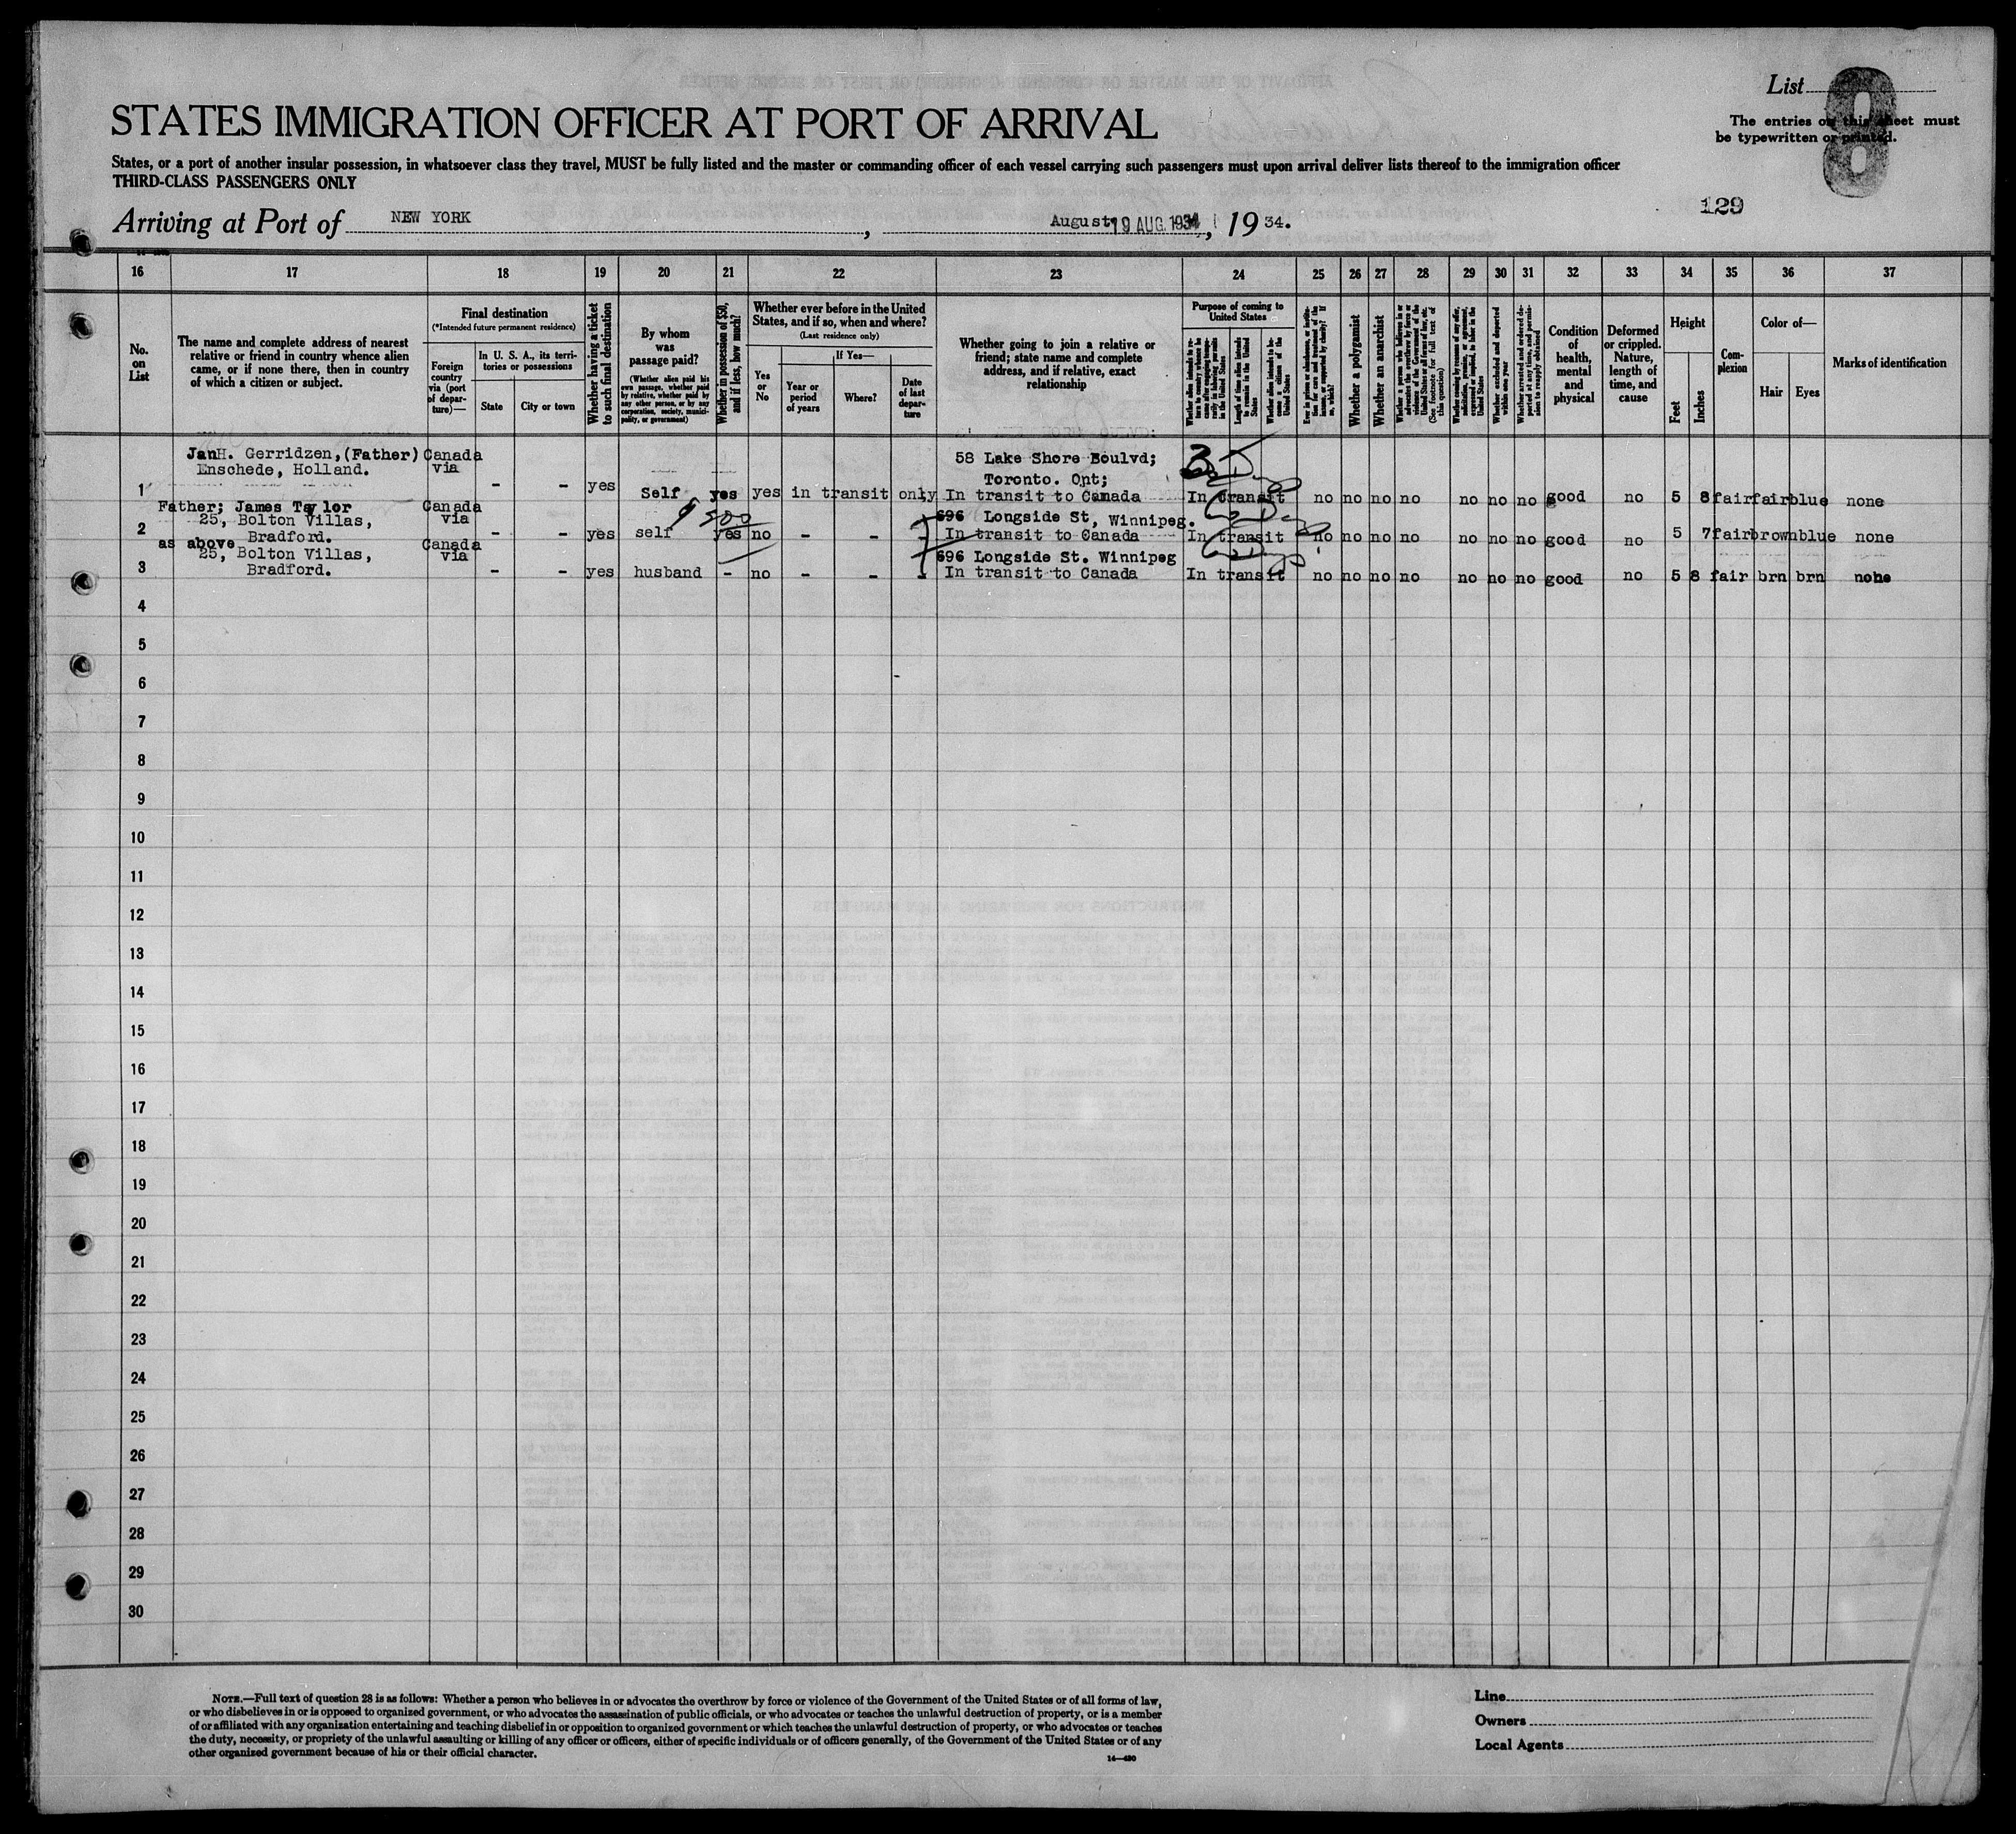 List
8
The entries on this sheet must
be typewritten or printed.
STATES IMMIGRATION OFFICER AT PORT OF ARRIVAL
States, or a port of another insular possession, in whatsoever class they travel, MUST be fully listed and the master or commanding officer of each vessel carrying such passengers must upon arrival deliver lists thereof to the immigration officer
THIRD-CLASS PASSENGERS ONLY
129
Arriving at Port of NEW YORK, August 19 AUG. 1934, 1934.
16 17 18 19 20 21 22 23 24 25 26 27 28 29 30 31 32 33 34 35 36 37
No. on List
The name and complete address of nearest relative or friend in country whence alien came, or if none there, then in country of which a citizen or subject.
Final destination
(*Intended future permanent residence)
Foreign country via (port of departure)—
In U. S. A., its territories or possessions
State
City or town
Whether having a ticket to such final destination
By whom was passage paid?
(Whether alien paid his own passage, whether paid by relative, whether paid by any other person, or by any corporation, society, municipality, or government)
Whether in possession of $50, and if less, how much?
Whether ever before in the United States, and if so, when and where?
(Last residence only)
Yes or No
If Yes—
Year or period of years
Where?
Date of last departure
Whether going to join a relative or friend; state name and complete address, and if relative, exact relationship
Purpose of coming to United States
Length of time alien intends to remain in the United States
Whether alien intends to become a citizen of the United States
Whether a polygamist
Whether an anarchist
(See footnote for full text of this question)
Whether excluded and deported within one year
Condition of health, mental and physical
Deformed or crippled. Nature, length of time, and cause
Height
Feet
Inches
Complexion
Color of—
Hair
Eyes
Marks of identification
JanH. Gerridzen,(Father) Canada 58 Lake Shore Boulvd;
Enschede, Holland. via Toronto. Ont;
1 - - yes Self yes yes in transit only In transit to Canada In transit no no no no no no no good no 5 8 fair fair blue none
Father; James Taylor Canada
25, Bolton Villas, via $500 696 Longside St, Winnipeg.
2 Bradford. - - yes self yes no - - - In transit to Canada In transit no no no no no no no good no 5 7 fair brown blue none
as above Canada
25, Bolton Villas, via 696 Longside St. Winnipeg
3 Bradford. - - yes husband - no - - - In transit to Canada In transit no no no no no no no good no 5 8 fair brn brn none
4
5
6
7
8
9
10
11
12
13
14
15
16
17
18
19
20
21
22
23
24
25
26
27
28
29
30
NOTE.—Full text of question 28 is as follows: Whether a person who believes in or advocates the overthrow by force or violence of the Government of the United States or of all forms of law,
or who disbelieves in or is opposed to organized government, or who advocates the assassination of public officials, or who advocates or teaches the unlawful destruction of property, or is a member
of or affiliated with any organization entertaining and teaching disbelief in or opposition to organized government or which teaches the unlawful destruction of property, or who advocates or teaches
the duty, necessity, or propriety of the unlawful assaulting or killing of any officer or officers, either of specific individuals or of officers generally, of the Government of the United States or of any
other organized government because of his or their official character.
14—430
Line
Owners
Local Agents